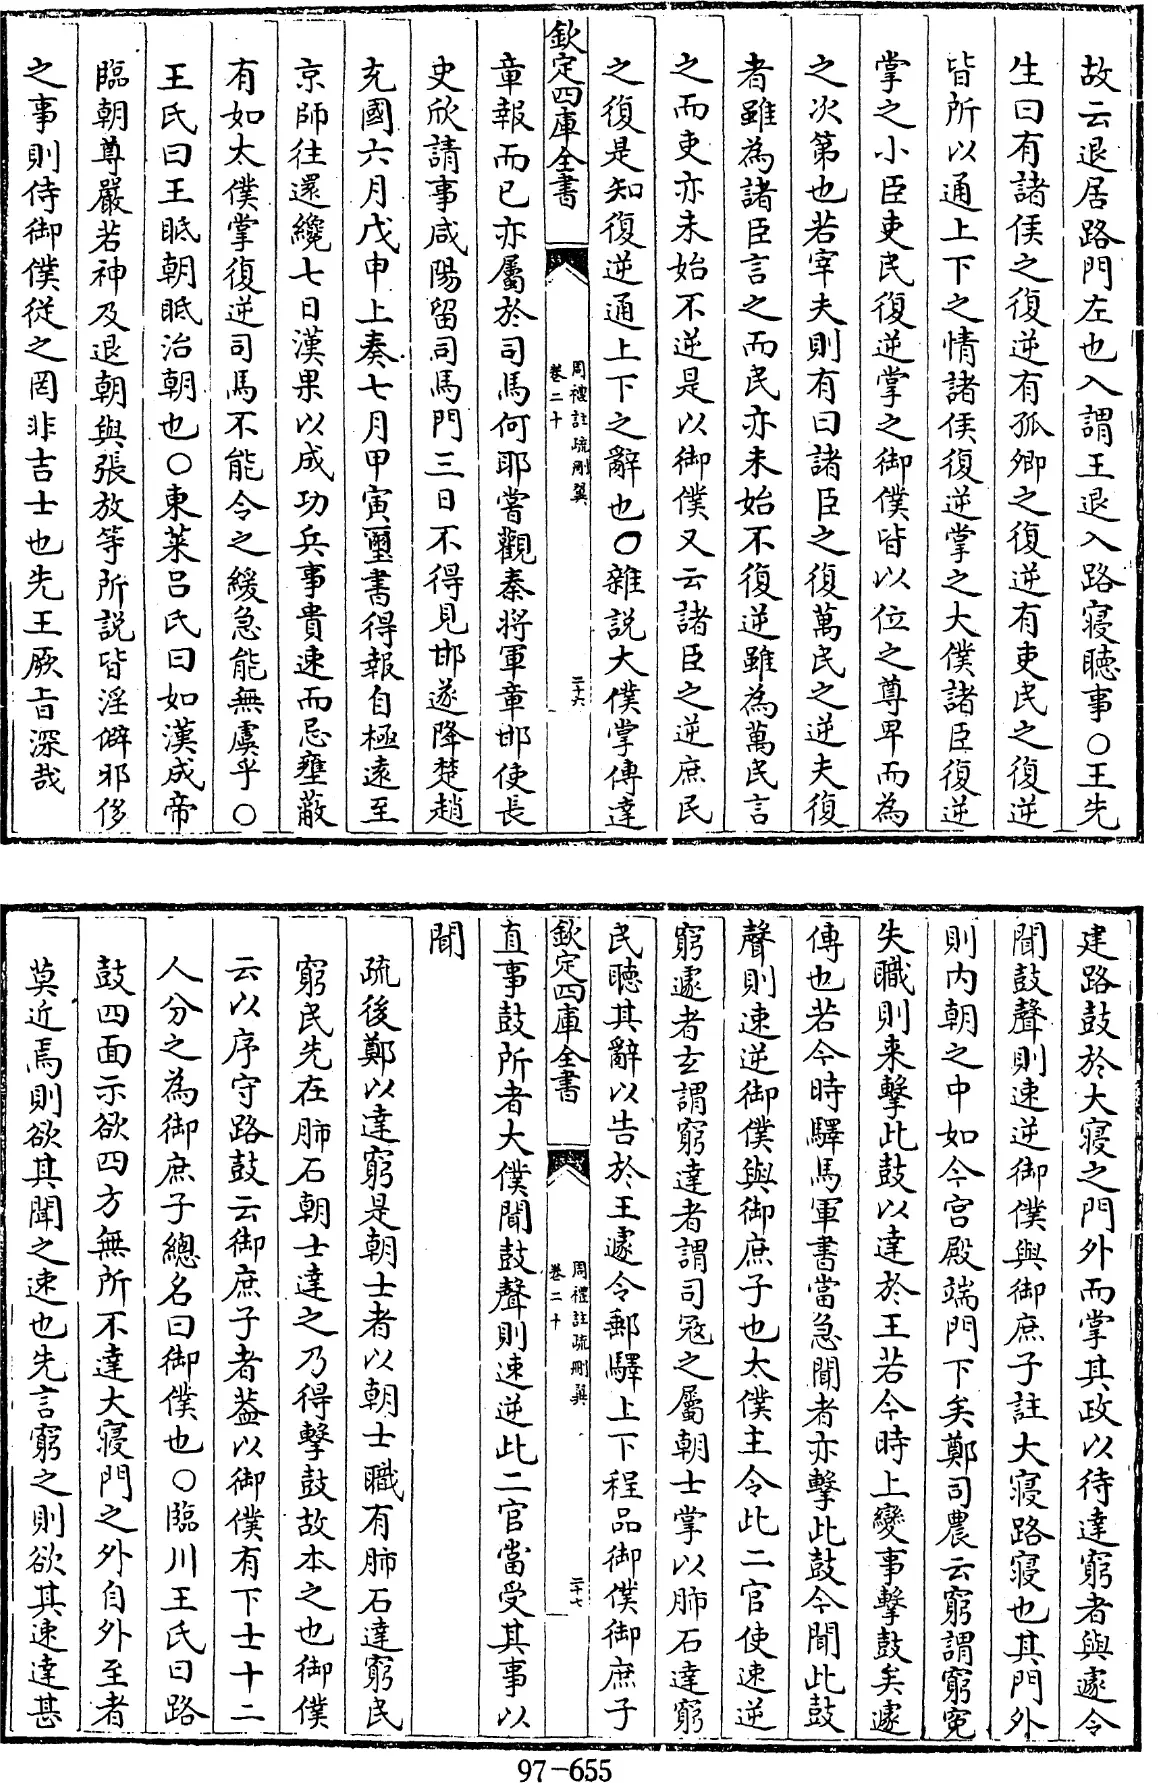 故云退居路門左也入謂王退入路寢聽事○王先
生曰有諸侯之復逆有孤卿之復逆有吏民之復逆
皆所以通上下之情諸侯復逆掌之大僕諸臣復逆
掌之小臣吏民復逆掌之御僕皆以位之尊卑而為
之次第也若宰夫則有曰諸臣之復萬民之逆夫復
者雖為諸臣言之而民亦未始不復逆雖為萬民言
之而吏亦未始不逆是以御僕又云諸臣之逆庶民
之復是知復逆通上下之辭也○雜説大僕掌傳達
欽定四庫全書
周禮註疏刪翼
卷二十
二十六
章報而已亦屬於司馬何耶嘗觀秦將軍章邯使長
史欣請事咸陽留司馬門三日不得見邯遂降楚趙
充國六月戊申上奏七月甲寅璽書得報自極遠至
京師往還纔七日漢果以成功兵事貴速而忌壅蔽
有如太僕掌復逆司馬不能令之緩急能無虞乎○
王氏曰王眡朝眡治朝也○東萊呂氏曰如漢成帝
臨朝尊嚴若神及退朝與張放等所説皆淫僻邪侈
之事則侍御僕從之罔非吉士也先王厥旨深哉
建路鼓於大寢之門外而掌其政以待達窮者與遽令
聞鼓聲則速逆御僕與御庶子註大寢路寢也其門外
則内朝之中如今宮殿端門下矣鄭司農云窮謂窮寃
失職則来擊此鼓以達於王若今時上變事擊鼓矣遽
傳也若今時驛馬軍書當急聞者亦擊此鼓今聞此鼓
聲則速逆御僕與御庶子也太僕主令此二官使速逆
窮遽者玄謂窮達者謂司冦之屬朝士掌以肺石達窮
民聽其辭以告於王遽令郵驛上下程品御僕御庶子
欽定四庫全書
周禮註疏刪翼
卷二十
二十七
直事鼓所者大僕聞鼓聲則速逆此二官當受其事以
聞
疏後鄭以達窮是朝士者以朝士職有肺石達窮民
窮民先在肺石朝士達之乃得擊鼓故本之也御僕
云以序守路鼓云御庶子者葢以御僕有下士十二
人分之為御庶子總名曰御僕也○臨川王氏曰路
鼓四面示欲四方無所不達大寢門之外自外至者
莫近焉則欲其聞之速也先言窮之則欲其速達甚
97-655